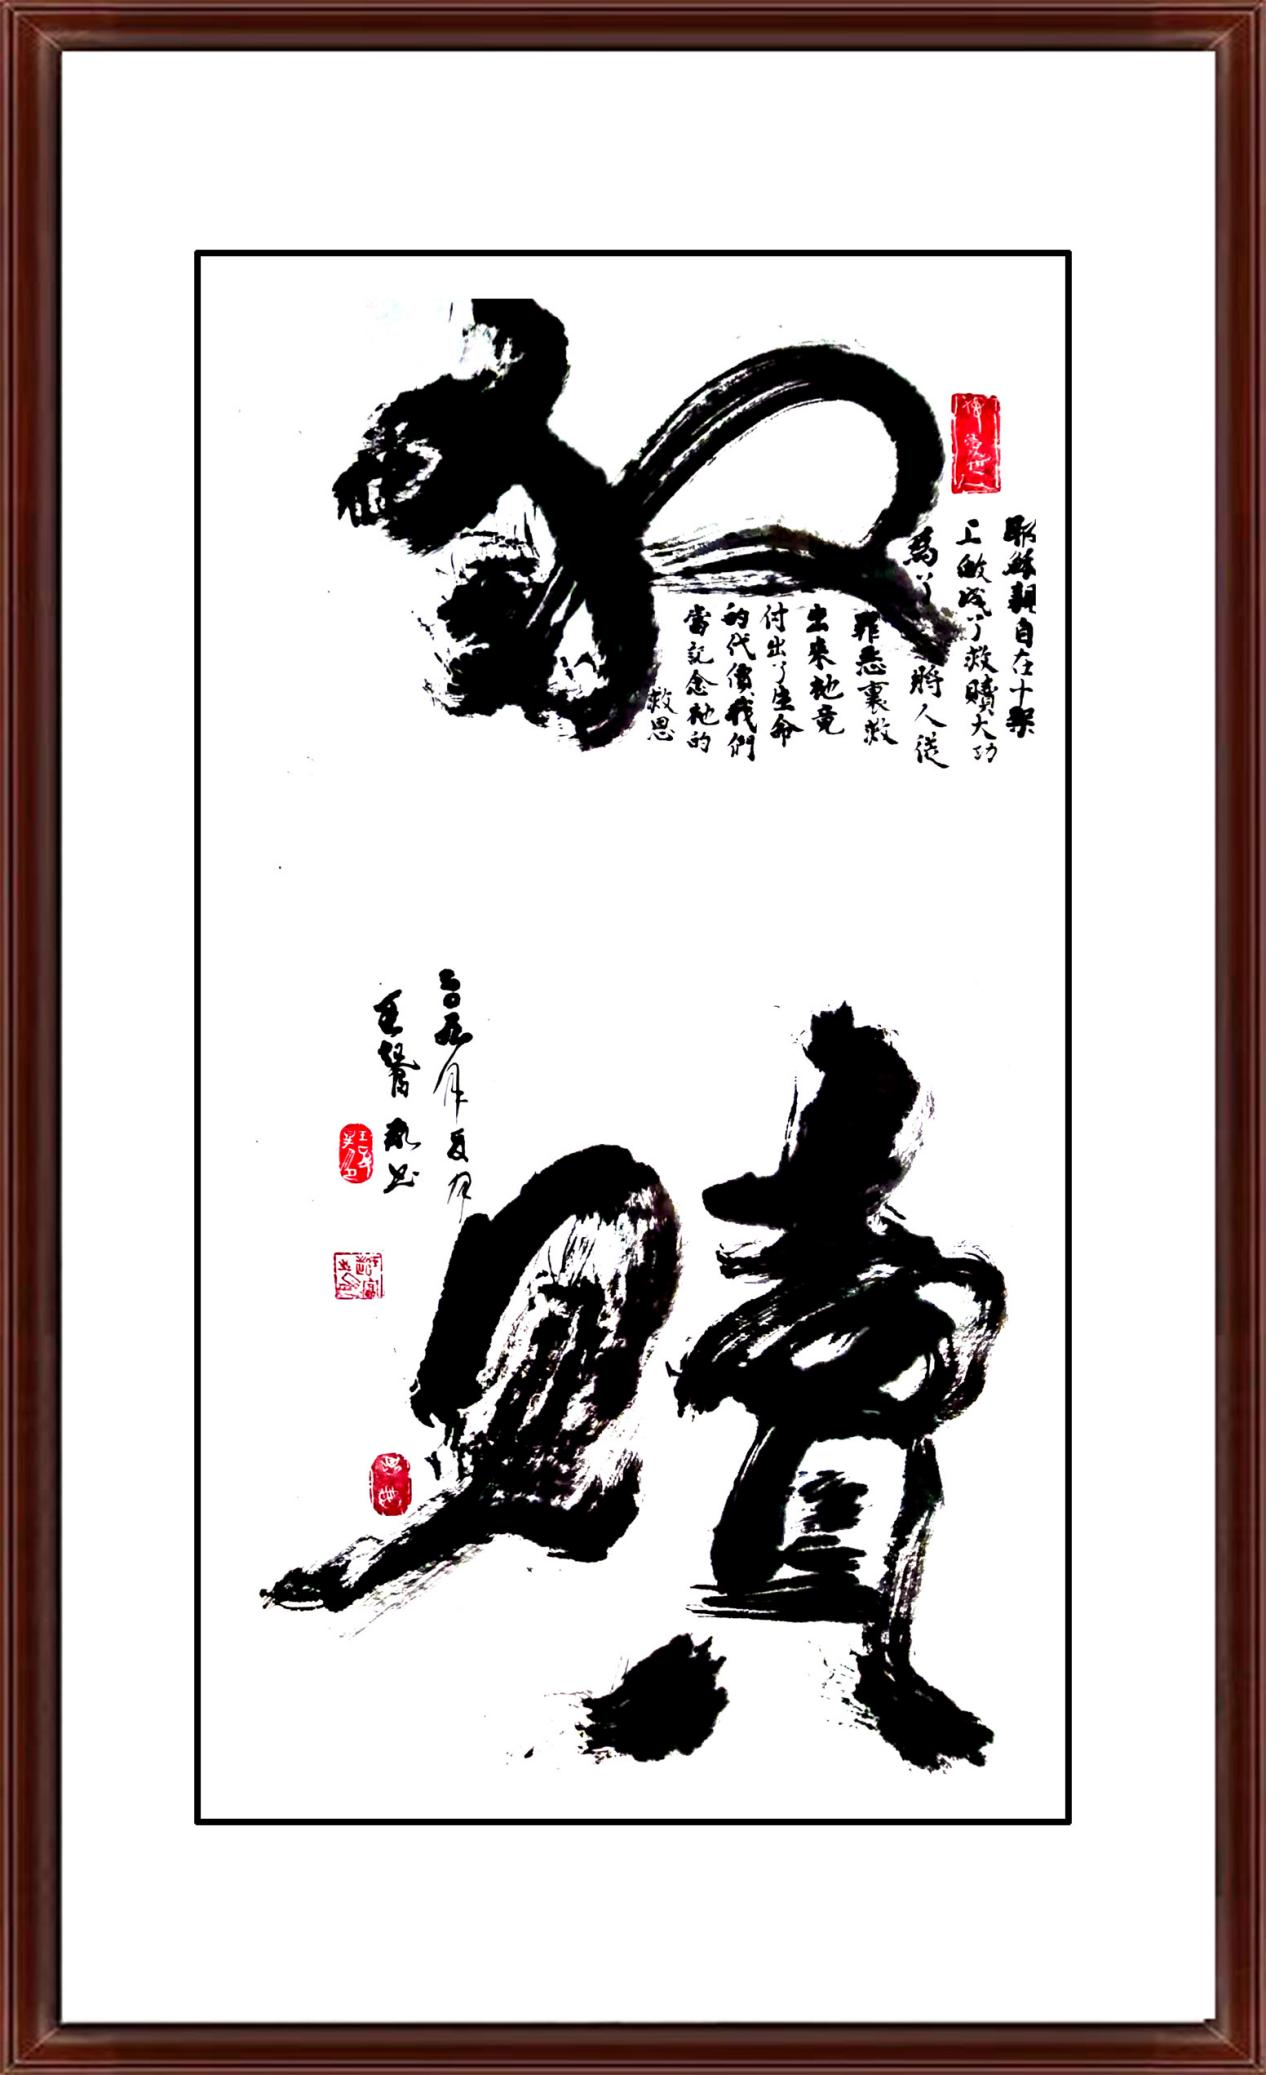 神愛世人
救贖
耶穌親自在十架
上做成了救贖大功
為了將人從
罪惡裏救
出來祂竟
付出了生命
的代價我們
當記念祂的
救恩
年夏月